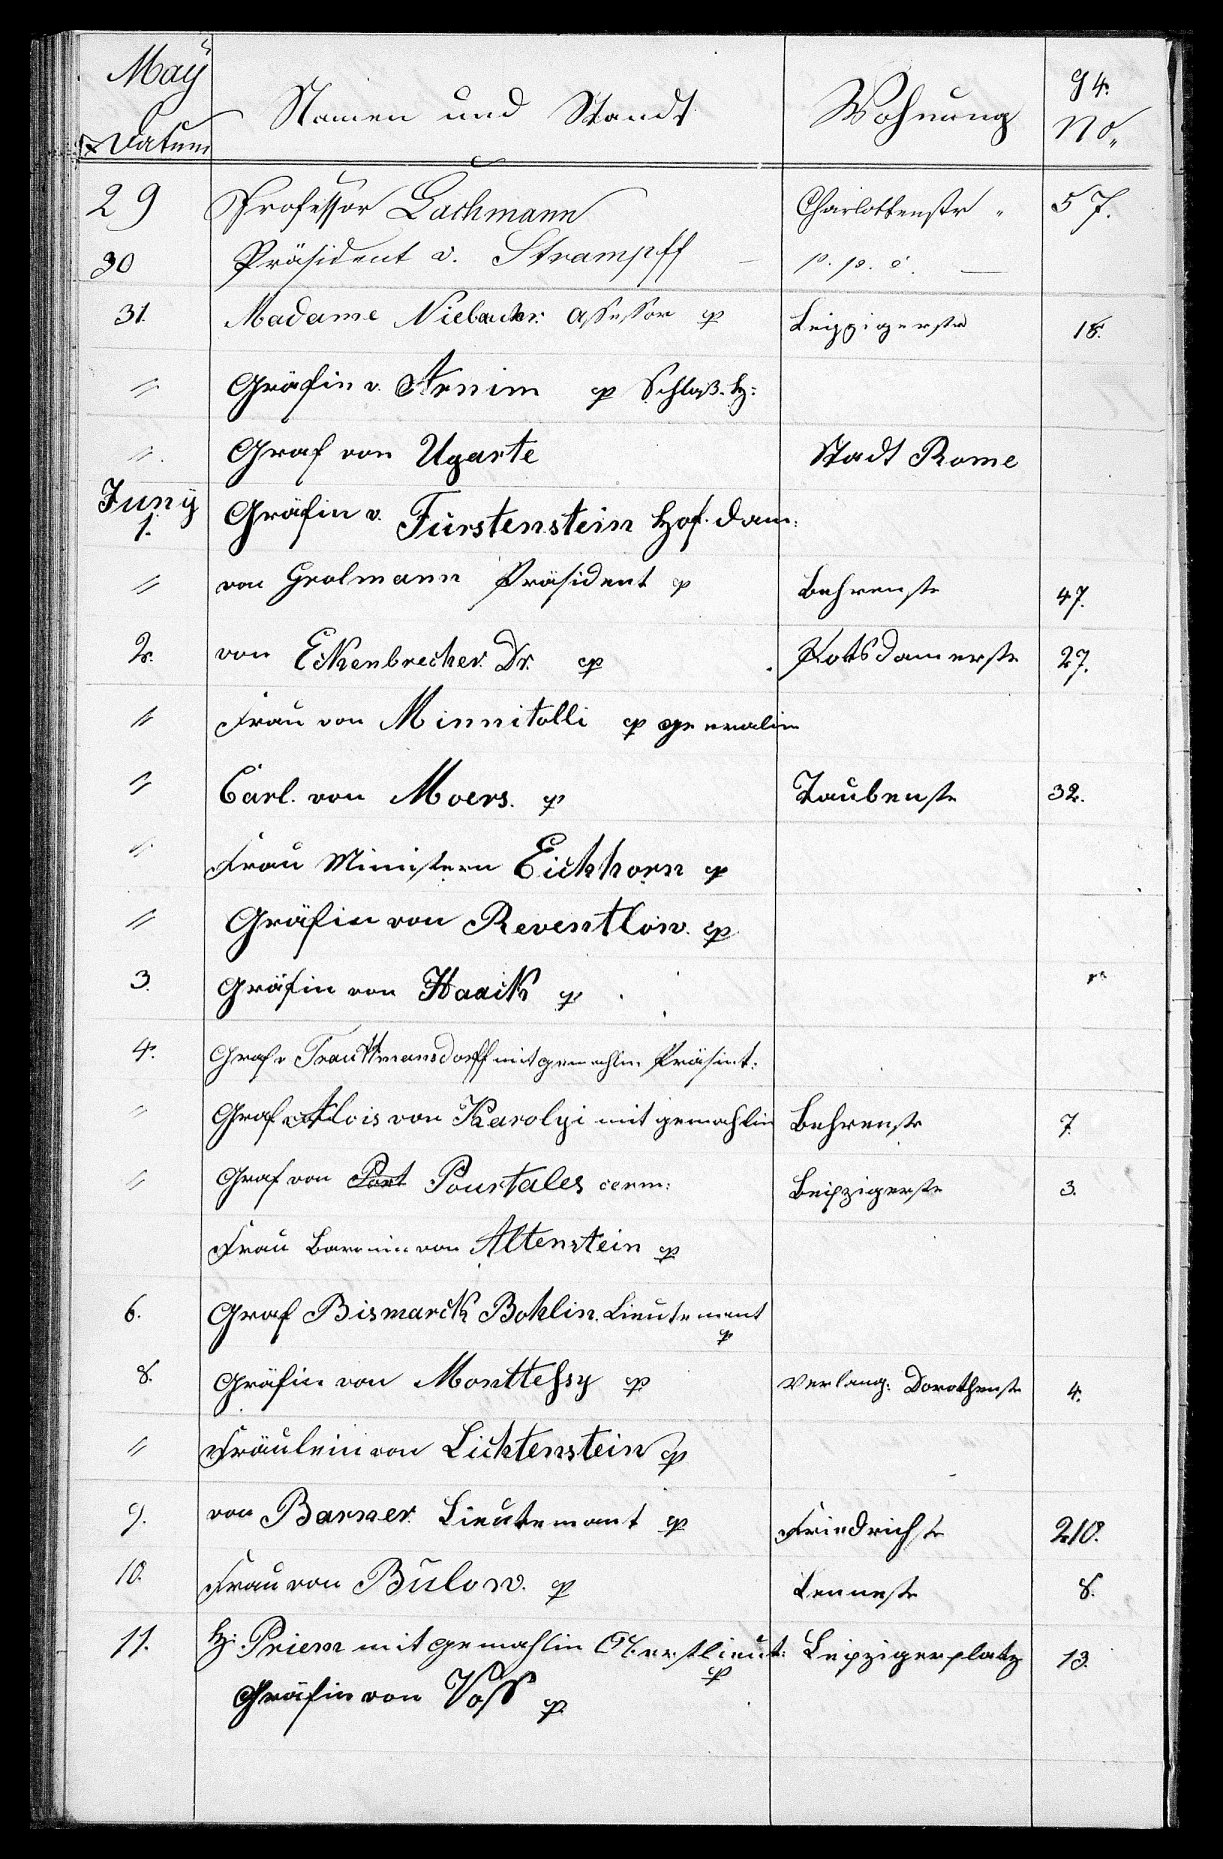 Maÿ
94.
Datum Namen und Standt Wohnung No.
29 Professor Lachmann Charlottenstr " 57.
30 Präsident v. Strampff — p. p. c. —
31. Madame Niebuhr: Assessor p Leipzigerstr 18.
" Gräfin v. Arnim p Schloß. H:
" Graf von Ugarte Stadt Rome
Junÿ
1. Gräfin v. Fürstenstein Hof. dam:
" von Grolmann Präsident p Behrenstr 47.
2. von Eckenbrecher Dr. p Potsdamerstr 27.
" Frau von Minnitolli p generalin
" Carl. von Moers. p Taubenstr 32.
" Frau Ministern Eichhorn p
" Gräfin von Reventlow. p
3. Gräfin von Haack p
4. Graf v Trauttmansdorff mit gemahlin Präsint:
" Graf Alois von Karolyi mit gemahlin Behrenstr 7.
" Graf von Port Pourtales cerm: Leipzigerstr 3.
Frau Baronin von Altenstein p
6. Graf Bismarck Bohlin. Lieutenant
p
8. Gräfin von Monttessy p Verlang: Dorothenstr 4.
" Fräulein von Lichtenstein p
9. von Barner. Lieutenant p Friedrichstr 210.
10. Frau von Bülow. p Lennestr 8.
11. H: Priem mit gemahlin Oberstlieut: Leipzigerplatz 13.
p
Gräfin von Voss p